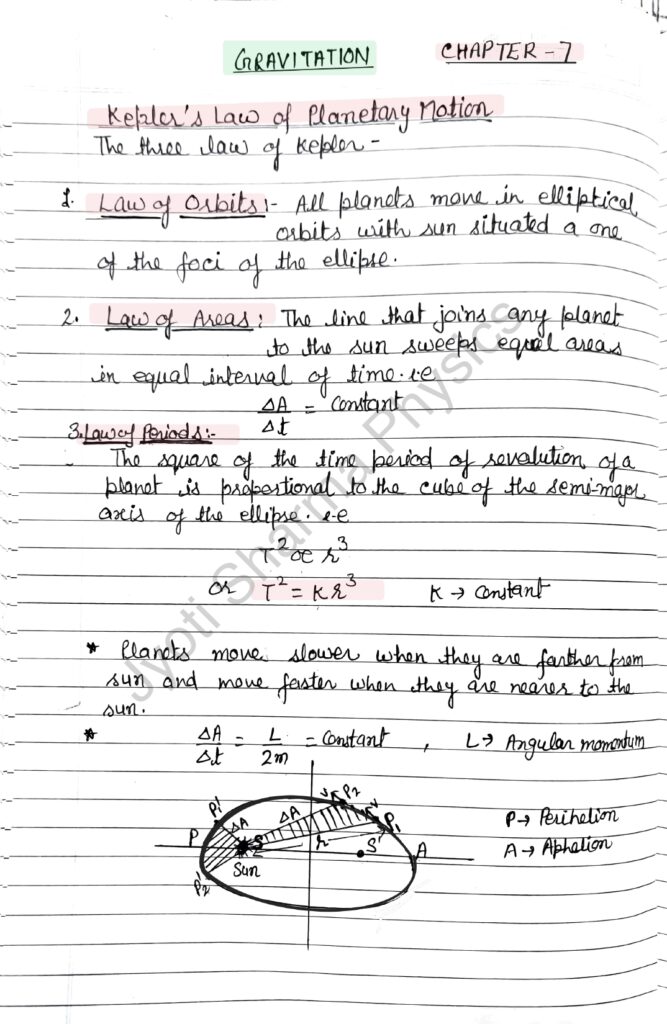 GRAVITATION CHAPTER - 7
Kepler's Law of Planetary Motion
The three law of Kepler -
1. Law of Orbits :- All planets move in elliptical
orbits with sun situated a one
of the foci of the ellipse.
2. Law of Areas : The line that joins any planet
to the sun sweeps equal areas
in equal interval of time. i.e
ΔA/Δt = Constant
3. Law of Periods :-
The square of the time period of revolution of a
planet is propostional to the cube of the semi-major
axis of the ellipse. i-e
T² ∝ r³
or T² = K r³ K → Constant
* Planets move slower when they are farther from
sun and move faster when they are nearer to the
sun.
* ΔA/Δt = L/2m = Constant , L → Angular momentum
P1' ΔA S ΔA v P2 v P1
P r S' A
Sun
P2'
P → Perihelion
A → Aphelion
Jyoti Sharma Physics